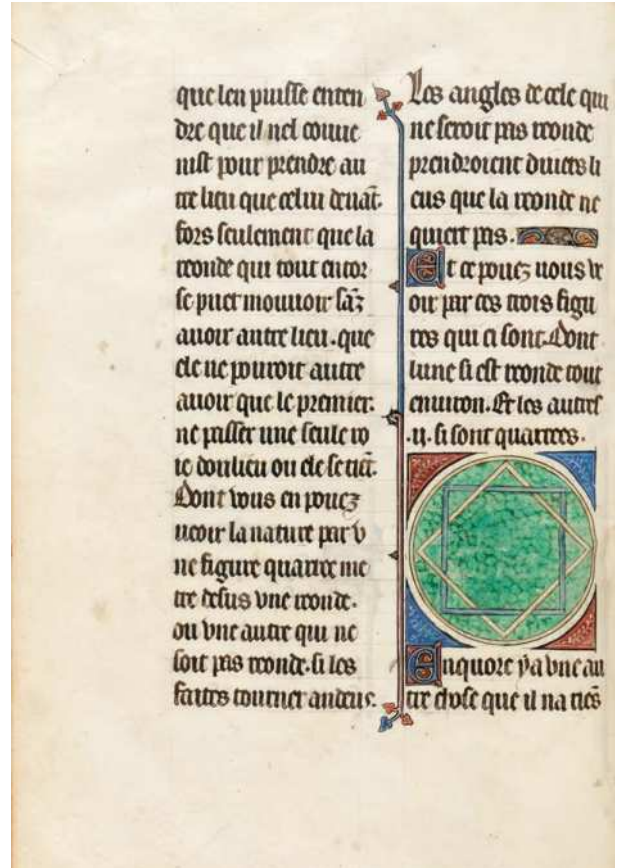 que len puisse enten
dre que il nel couue
nist pour prendre au
tre lieu que celui deuāt.
fors seulement que la
reonde qui tout entor
se puet mouuoir sāz
auoir autre lieu. que
ele ne pourroit autre
auoir que le premier.
ne passer une seule ro
ie dou lieu ou ele se tiēt.
Dont vous en pouez
veoir la nature par v
ne figure quarree me
tre desus vne reonde.
ou vne autre qui ne
soit pas reonde. si les
faites tourner andeus.
Les angles de cele qui
ne seroit pas reonde
prendroient diuers li
eus que la reonde ne
quiert pas.
Et ce pouez uous ve
oir par ces trois figu
res qui ci sont. Dont
lune si est reonde tout
enuiron. Et les autres
.ij. si sont quarrees.
Enquore ya vne au
tre chose que il na riēs